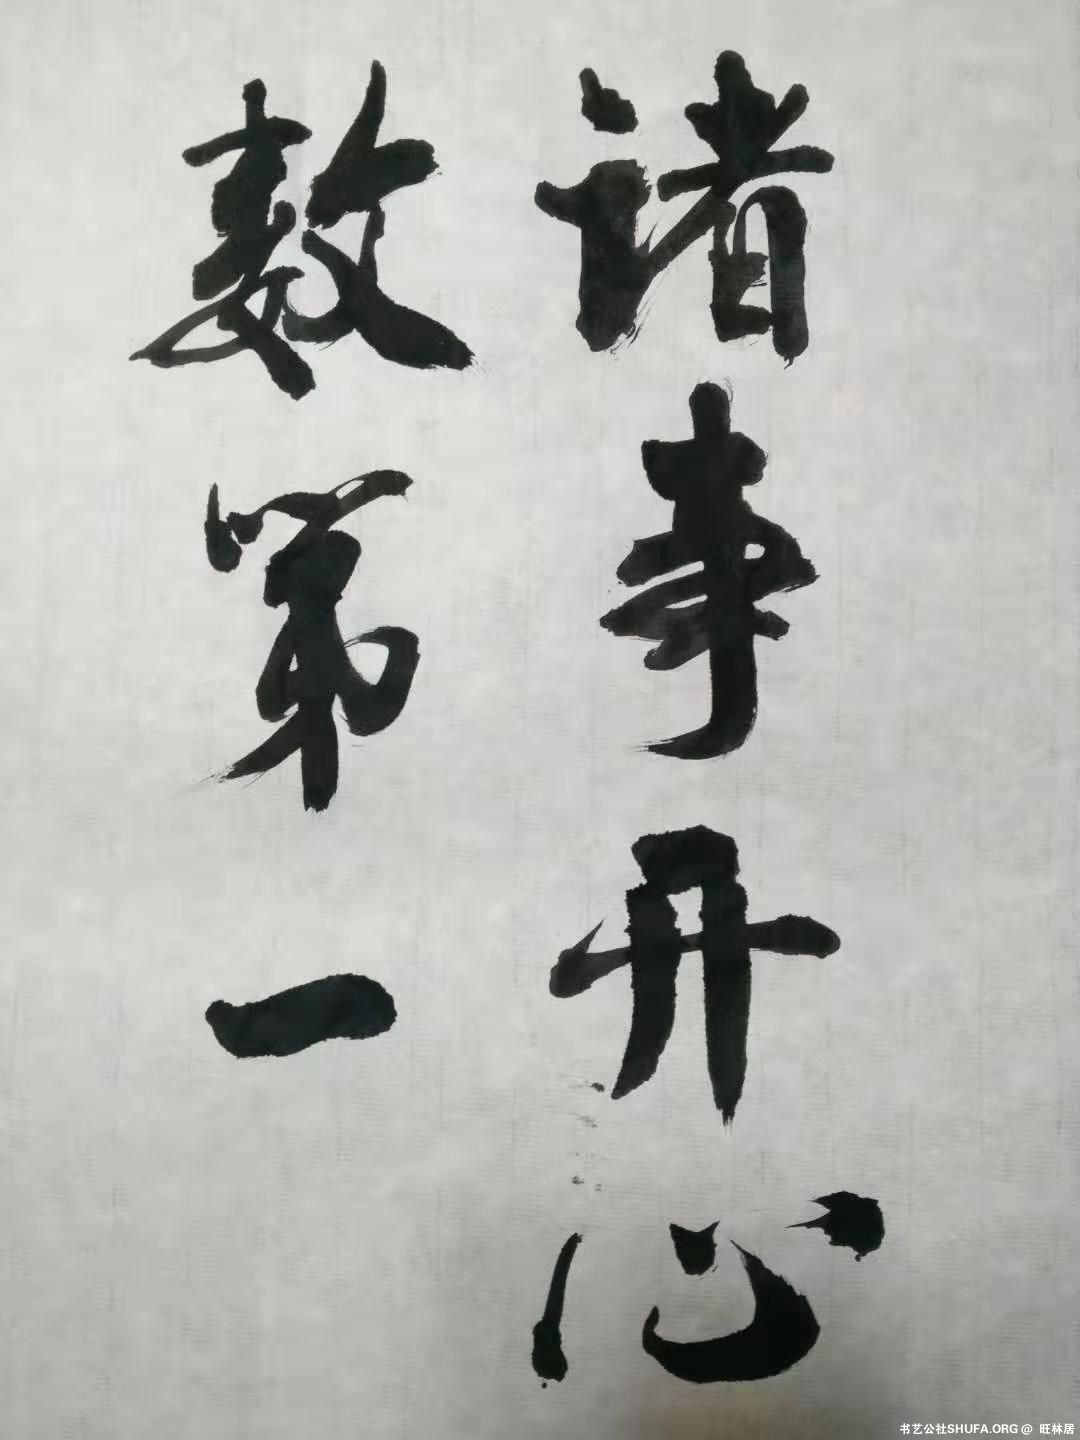 诸事开心
数第一
书艺公社SHUFA.ORG @ 旺林居